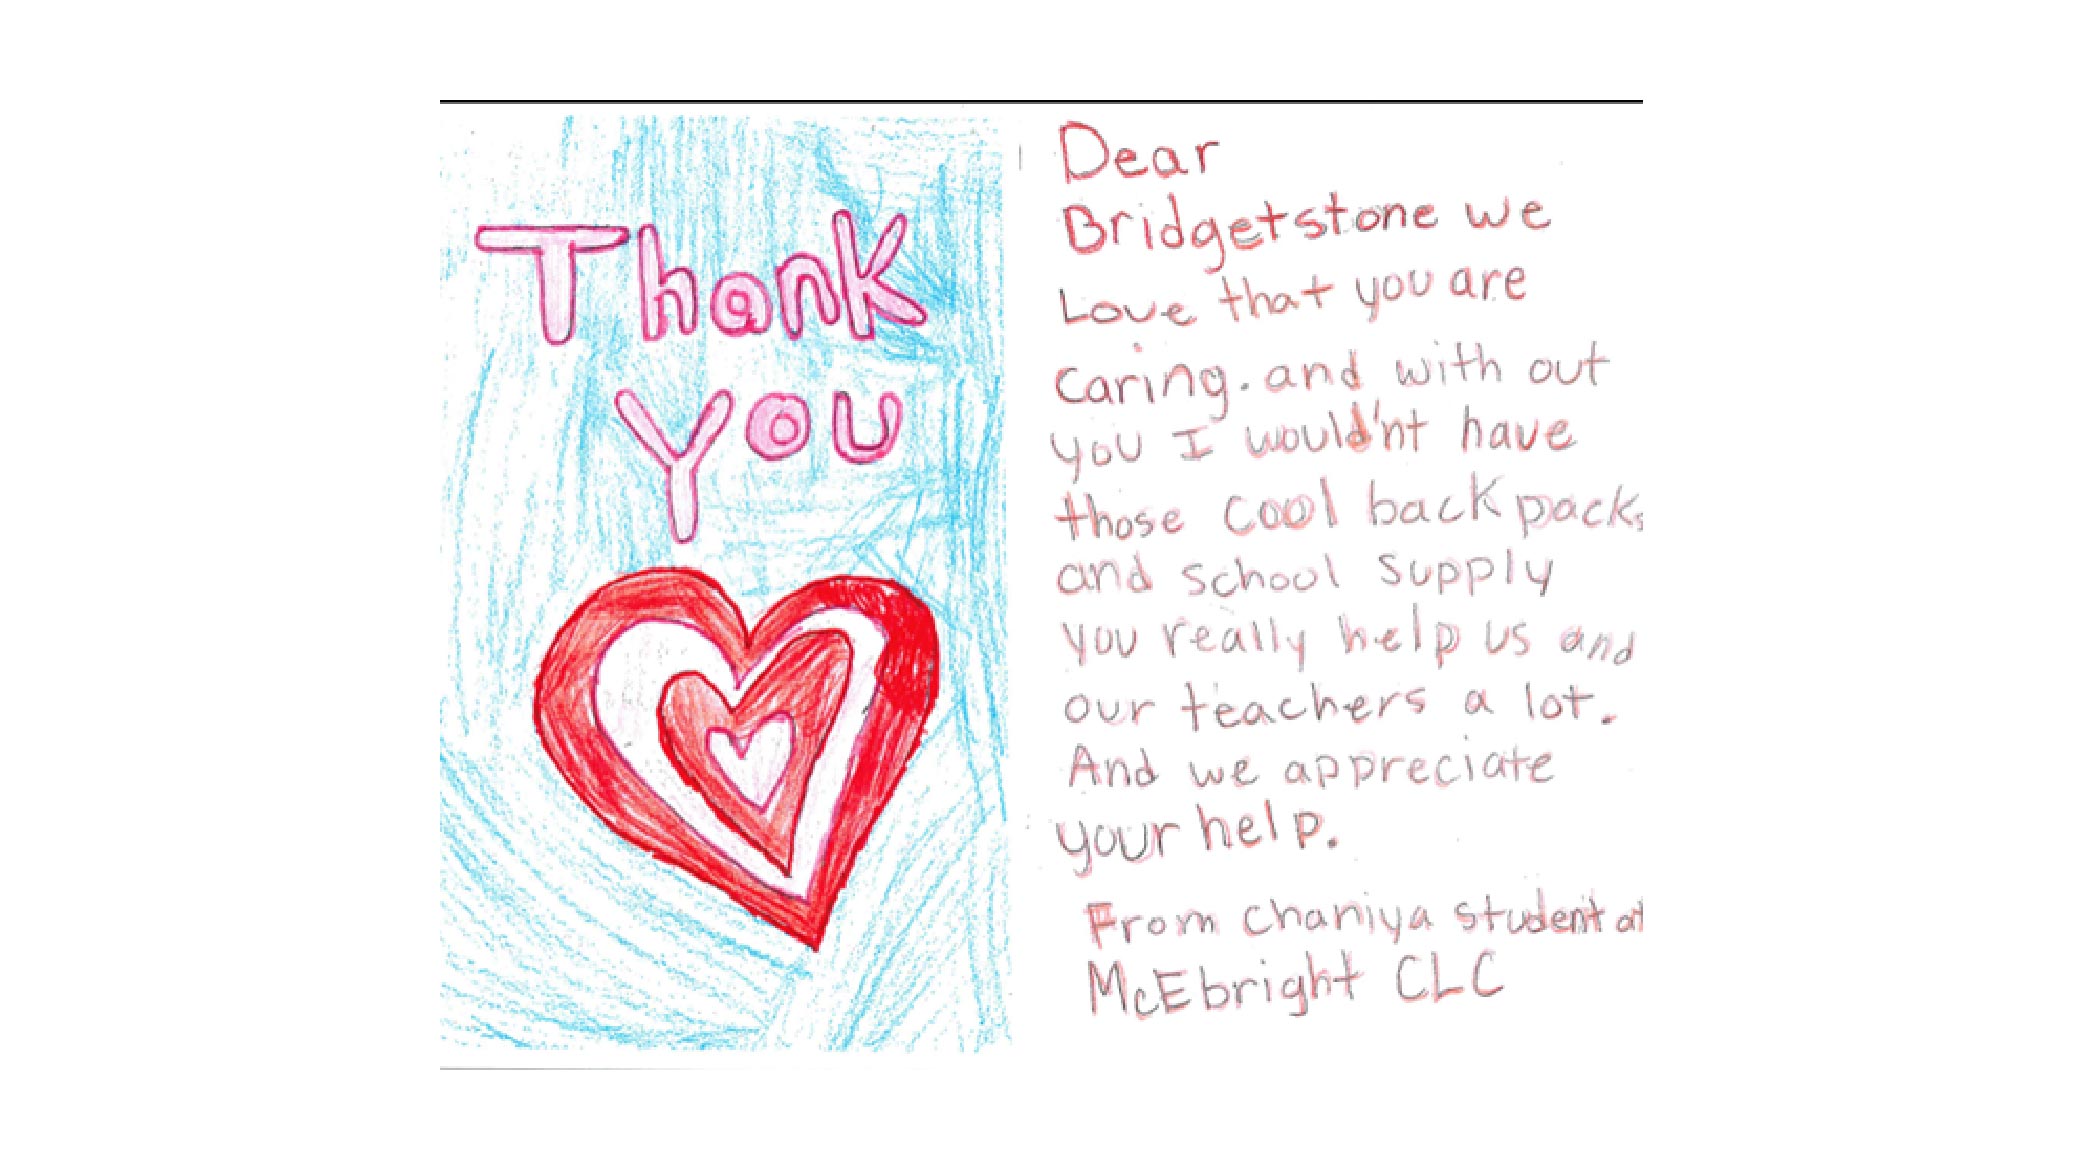 Thank
You
Dear
Bridgetstone we
Love that you are
Caring. and with out
you I would'nt have
those Cool back packs
and school supply
you really help us and
our teachers a lot.
And we appreciate
your help.
From Chaniya student at
McEbright CLC